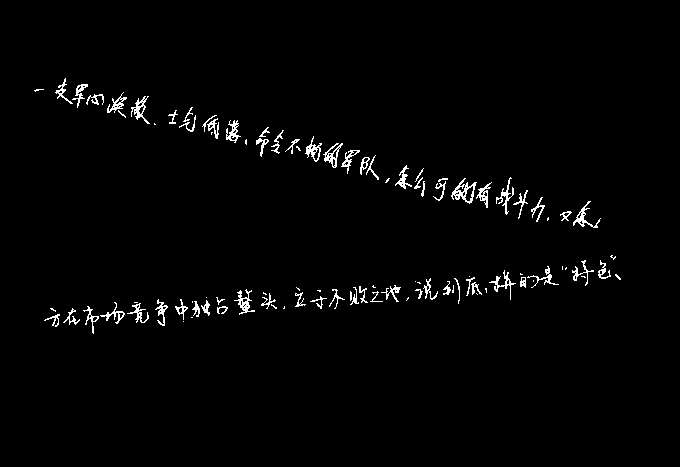 一支军心涣散、士气低落、命令不畅的军队，怎么可能有战斗力，又怎
方在市场竞争中独占鳌头，立于不败之地，说到底，拼的是“特色”、